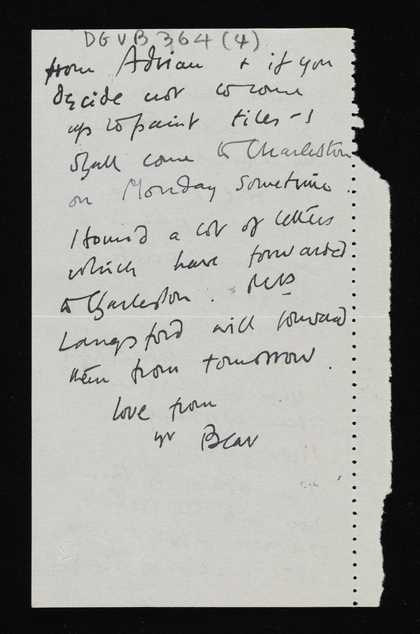 DGVB 364 (4)
from Adrian + if you
decide not to come
up to paint tiles - I
shall come to Charleston
on Monday sometime.
I found a lot of letters
which have forwarded
to Charleston. Mrs
Langsford will forward
them from tomorrow.
love from
yr Bear